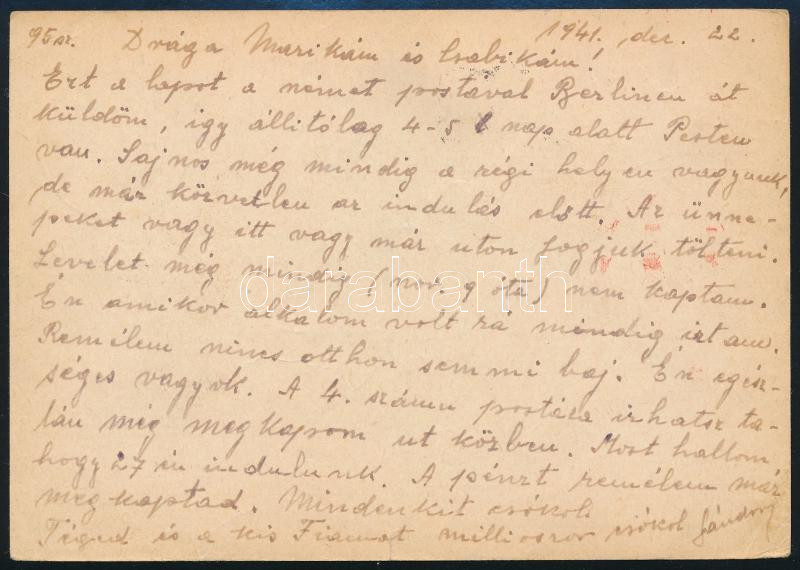 95 sz. 1941. dec. 22.
Drága Marikám és Csabikám!
Ezt a lapot a német postával Berlinen át
küldöm, igy állitólag 4-5 nap alatt Pesten
van. Sajnos még mindig a régi helyen vagyunk,
de már közvetlen az indulás előtt. Az ünne-
peket vagy itt vagy már uton fogjuk tölteni.
Levelet még mindig (nov. 9 óta) nem kaptam.
Én amikor alkalom volt rá mindig irtam.
Remélem nincs otthon semmi baj. Én egész-
séges vagyok. A 4. számu postára irhatsz ta-
lán még megkapom ut közben. Most hallom
hogy 27 én indulunk. A pénzt remélem már
megkaptad. Mindenkit csókol
Téged és a kis Fiamat milliószor csókol Sándor
darabanth